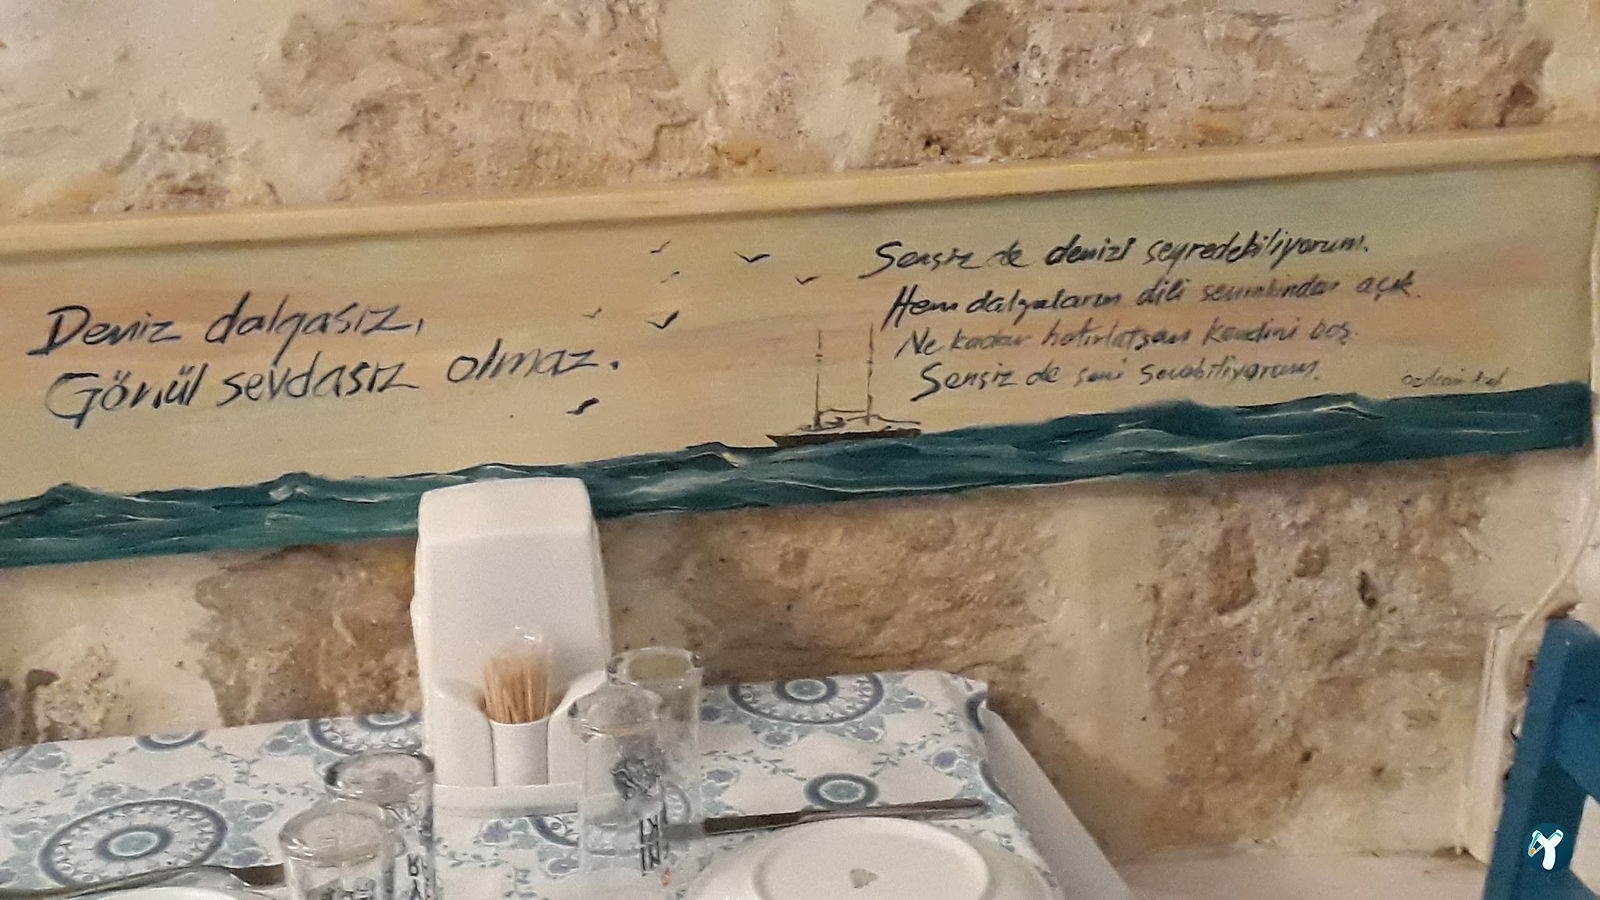 Deniz dalgasız,
Gönül sevdasız olmaz.
Sensiz de denizi seyredebiliyorum.
Hem dalgaların dili seninkinden açık.
Ne kadar hatırlatsan kendini boş.
Sensiz de seni sevebiliyorum.